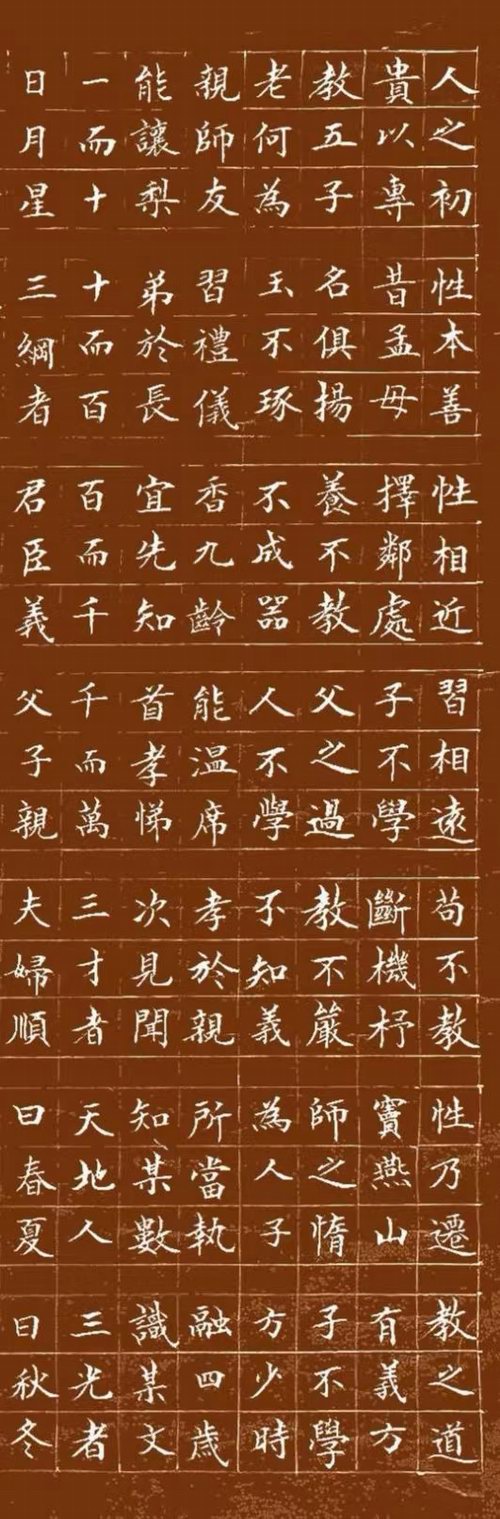 人之初性本善性相近習相遠苟不教性乃遷教之道
貴以專昔孟母擇鄰處子不學斷機杼竇燕山有義方
教五子名俱揚養不教父之過教不嚴師之惰子不學
老何為玉不琢不成器人不學不知義為人子方少時
親師友習禮儀香九齡能溫席孝於親所當執融四歲
能讓梨弟於長宜先知首孝悌次見聞知某數識某文
一而十十而百百而千千而萬三才者天地人三光者
日月星三綱者君臣義父子親夫婦順曰春夏曰秋冬